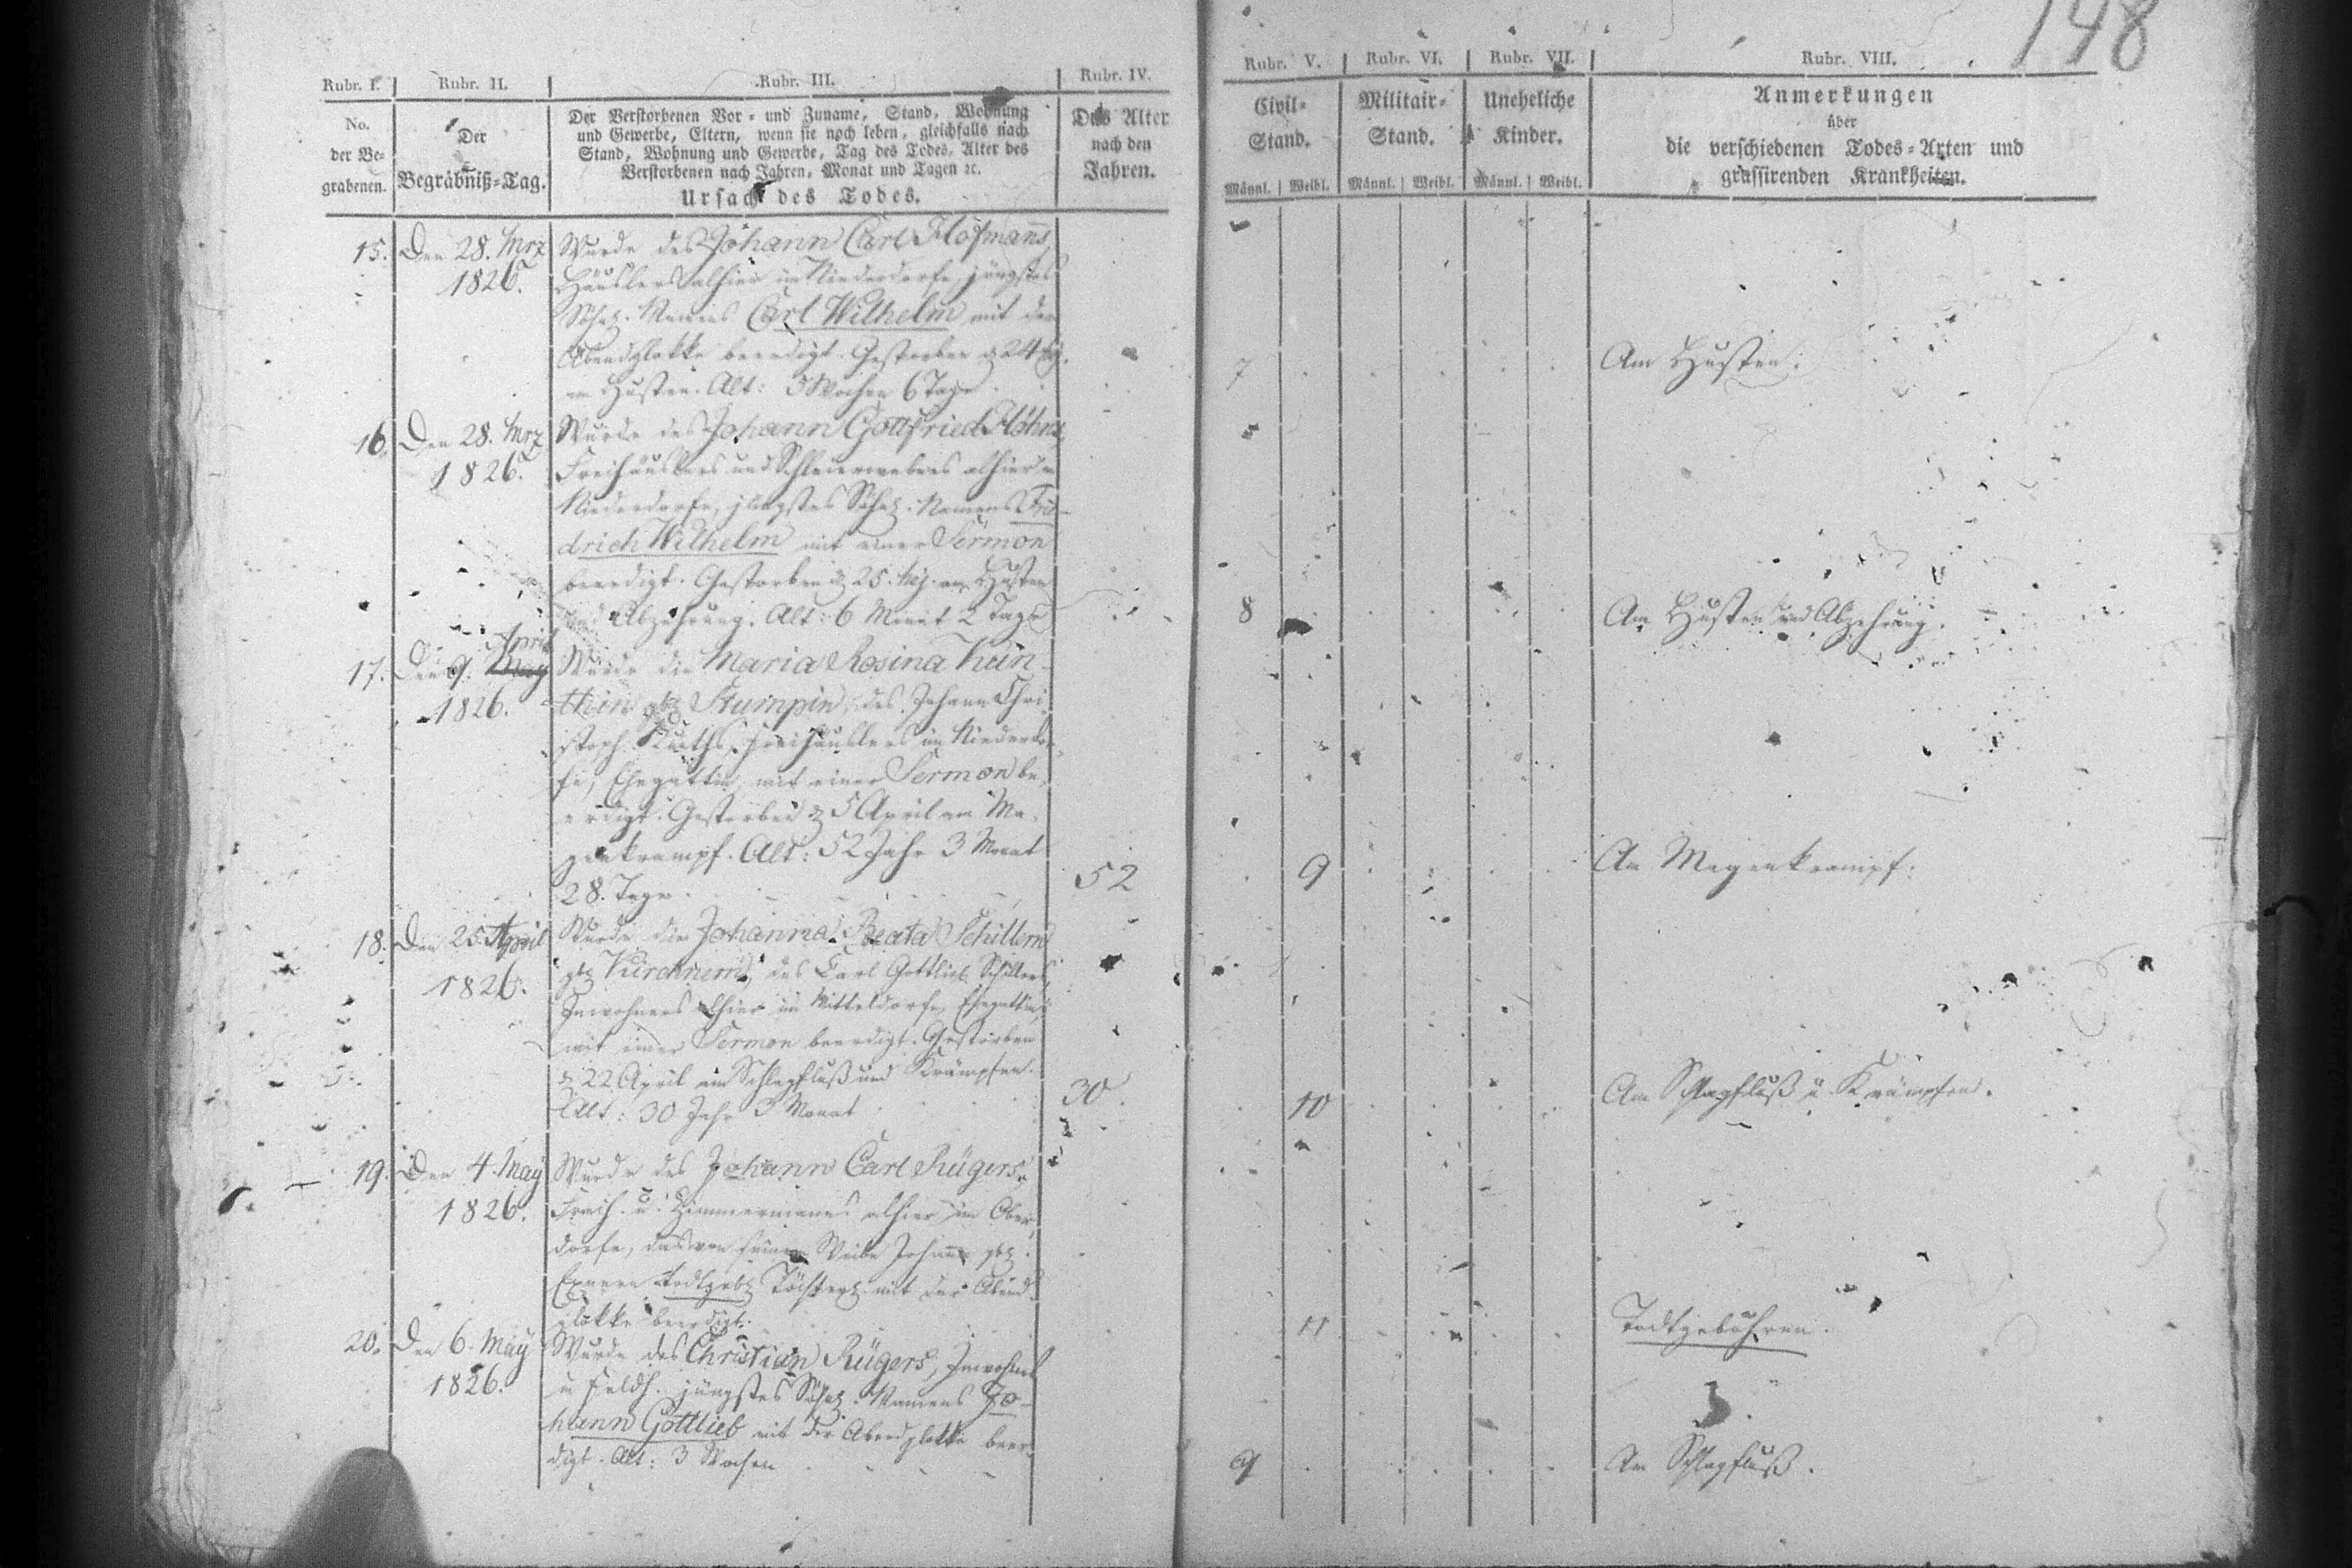 148
Rubr. I. Rubr. II. Rubr. III. Rubr. IV. Rubr. V. Rubr. VI. Rubr. VII. Rubr. VIII.
No.
der Be-
grabenen.
Der
Begräbniß-Tag.
Der Verstorbenen Vor- und Zuname, Stand, Wohnung
und Gewerbe, Eltern, wenn sie noch leben, gleichfalls nach
Stand, Wohnung und Gewerbe, Tag des Todes, Alter des
Verstorbenen nach Jahren, Monat und Tagen ꝛc.
Ursach des Todes.
Das Alter
nach den
Jahren.
Civil-
Stand.
Männl. Weibl.
Militair-
Stand.
Männl. Weibl.
Uneheliche
Kinder.
Männl. Weibl.
Anmerkungen
über
die verschiedenen Todes-Arten und
grassirenden Krankheiten.
15. Den 28. Mrz
1826.
Wurde des Johann Carl Hofmanns,
Häuslers alhier im Niederdorfe jüngstes
Söhnl. Namens Carl Wilhelm mit der
Abendglokke beerdigt. Gestorben 24
am Husten. Alt: 3 Wochen 6 Tage
7
Am Husten.
16. Den 28. Mrz
1826.
Wurde des Johann Gottfried
Freihäuslers und Schleierwebers alhier im
Niederdorfe, jüngstes Söhnl. Namens Frie-
drich Wilhelm mit einer Sermon
beerdigt. Gestorben 25. am Husten
und Abzehrung. Alt: 6 Monat 2 Tage
8
Am Husten und Abzehrung.
17. Den 9. April
1826.
Wurde die Maria Rosina Kün-
thin geb Stumpin, des Johann Chri-
stoph Freihäuslers im Niederdor-
fe, Ehegattin, mit einer Sermon be-
erdigt. Gestorben 5 April am Ma-
genkrampf. Alt: 52 Jahr 3 Monat
28. Tage.
52
9
Am Magenkrampf.
18. Den 25 April
1826.
Wurde die Johanna Beata Schillern
geb Kirchnern, des Carl Gottlieb Schillers,
Inwohners alhier im Mitteldorfe, Ehegattin
mit einer Sermon beerdigt. Gestorben
22 April am Schlagfluß und Krämpfen.
Alt: 30 Jahr 3 Monat
30.
10
Am Schlagfluß u Krämpfen.
19. Den 4. May
1826.
Wurde des Johann Carl Rügers,
Freih. u. Zimmermanns alhier im Ober-
dorfe, das von seinem Weibe Johanne geb.
Exnern todtgeb Töchterl. mit der Abend-
glokke beerdigt.
11
Todtgebohren.
20. Den 6. May
1826.
Wurde des Christian Rügers, Inwohner
u jüngstes Söhnl. Namens Jo-
hann Gottlieb mit der Abendglokke beer-
digt. Alt: 3 Wochen
9
Am Schlagfluß.